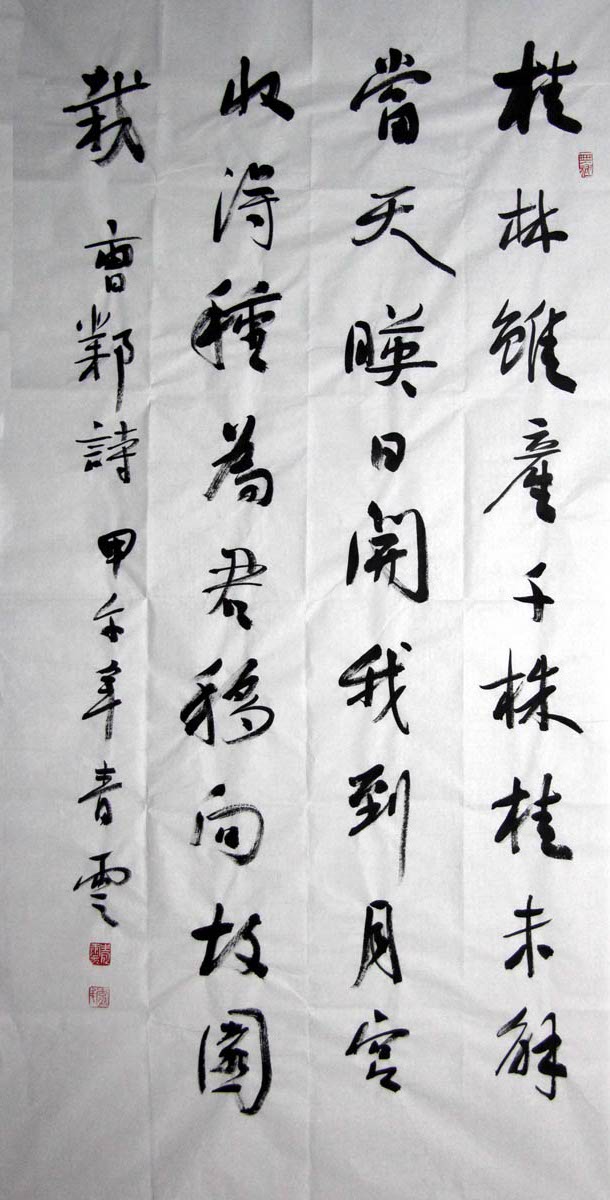 桂林雖產千株桂未解
當天暎日開我到月宮
收得種為君移向故園
栽 曹鄴詩 甲午年青雲